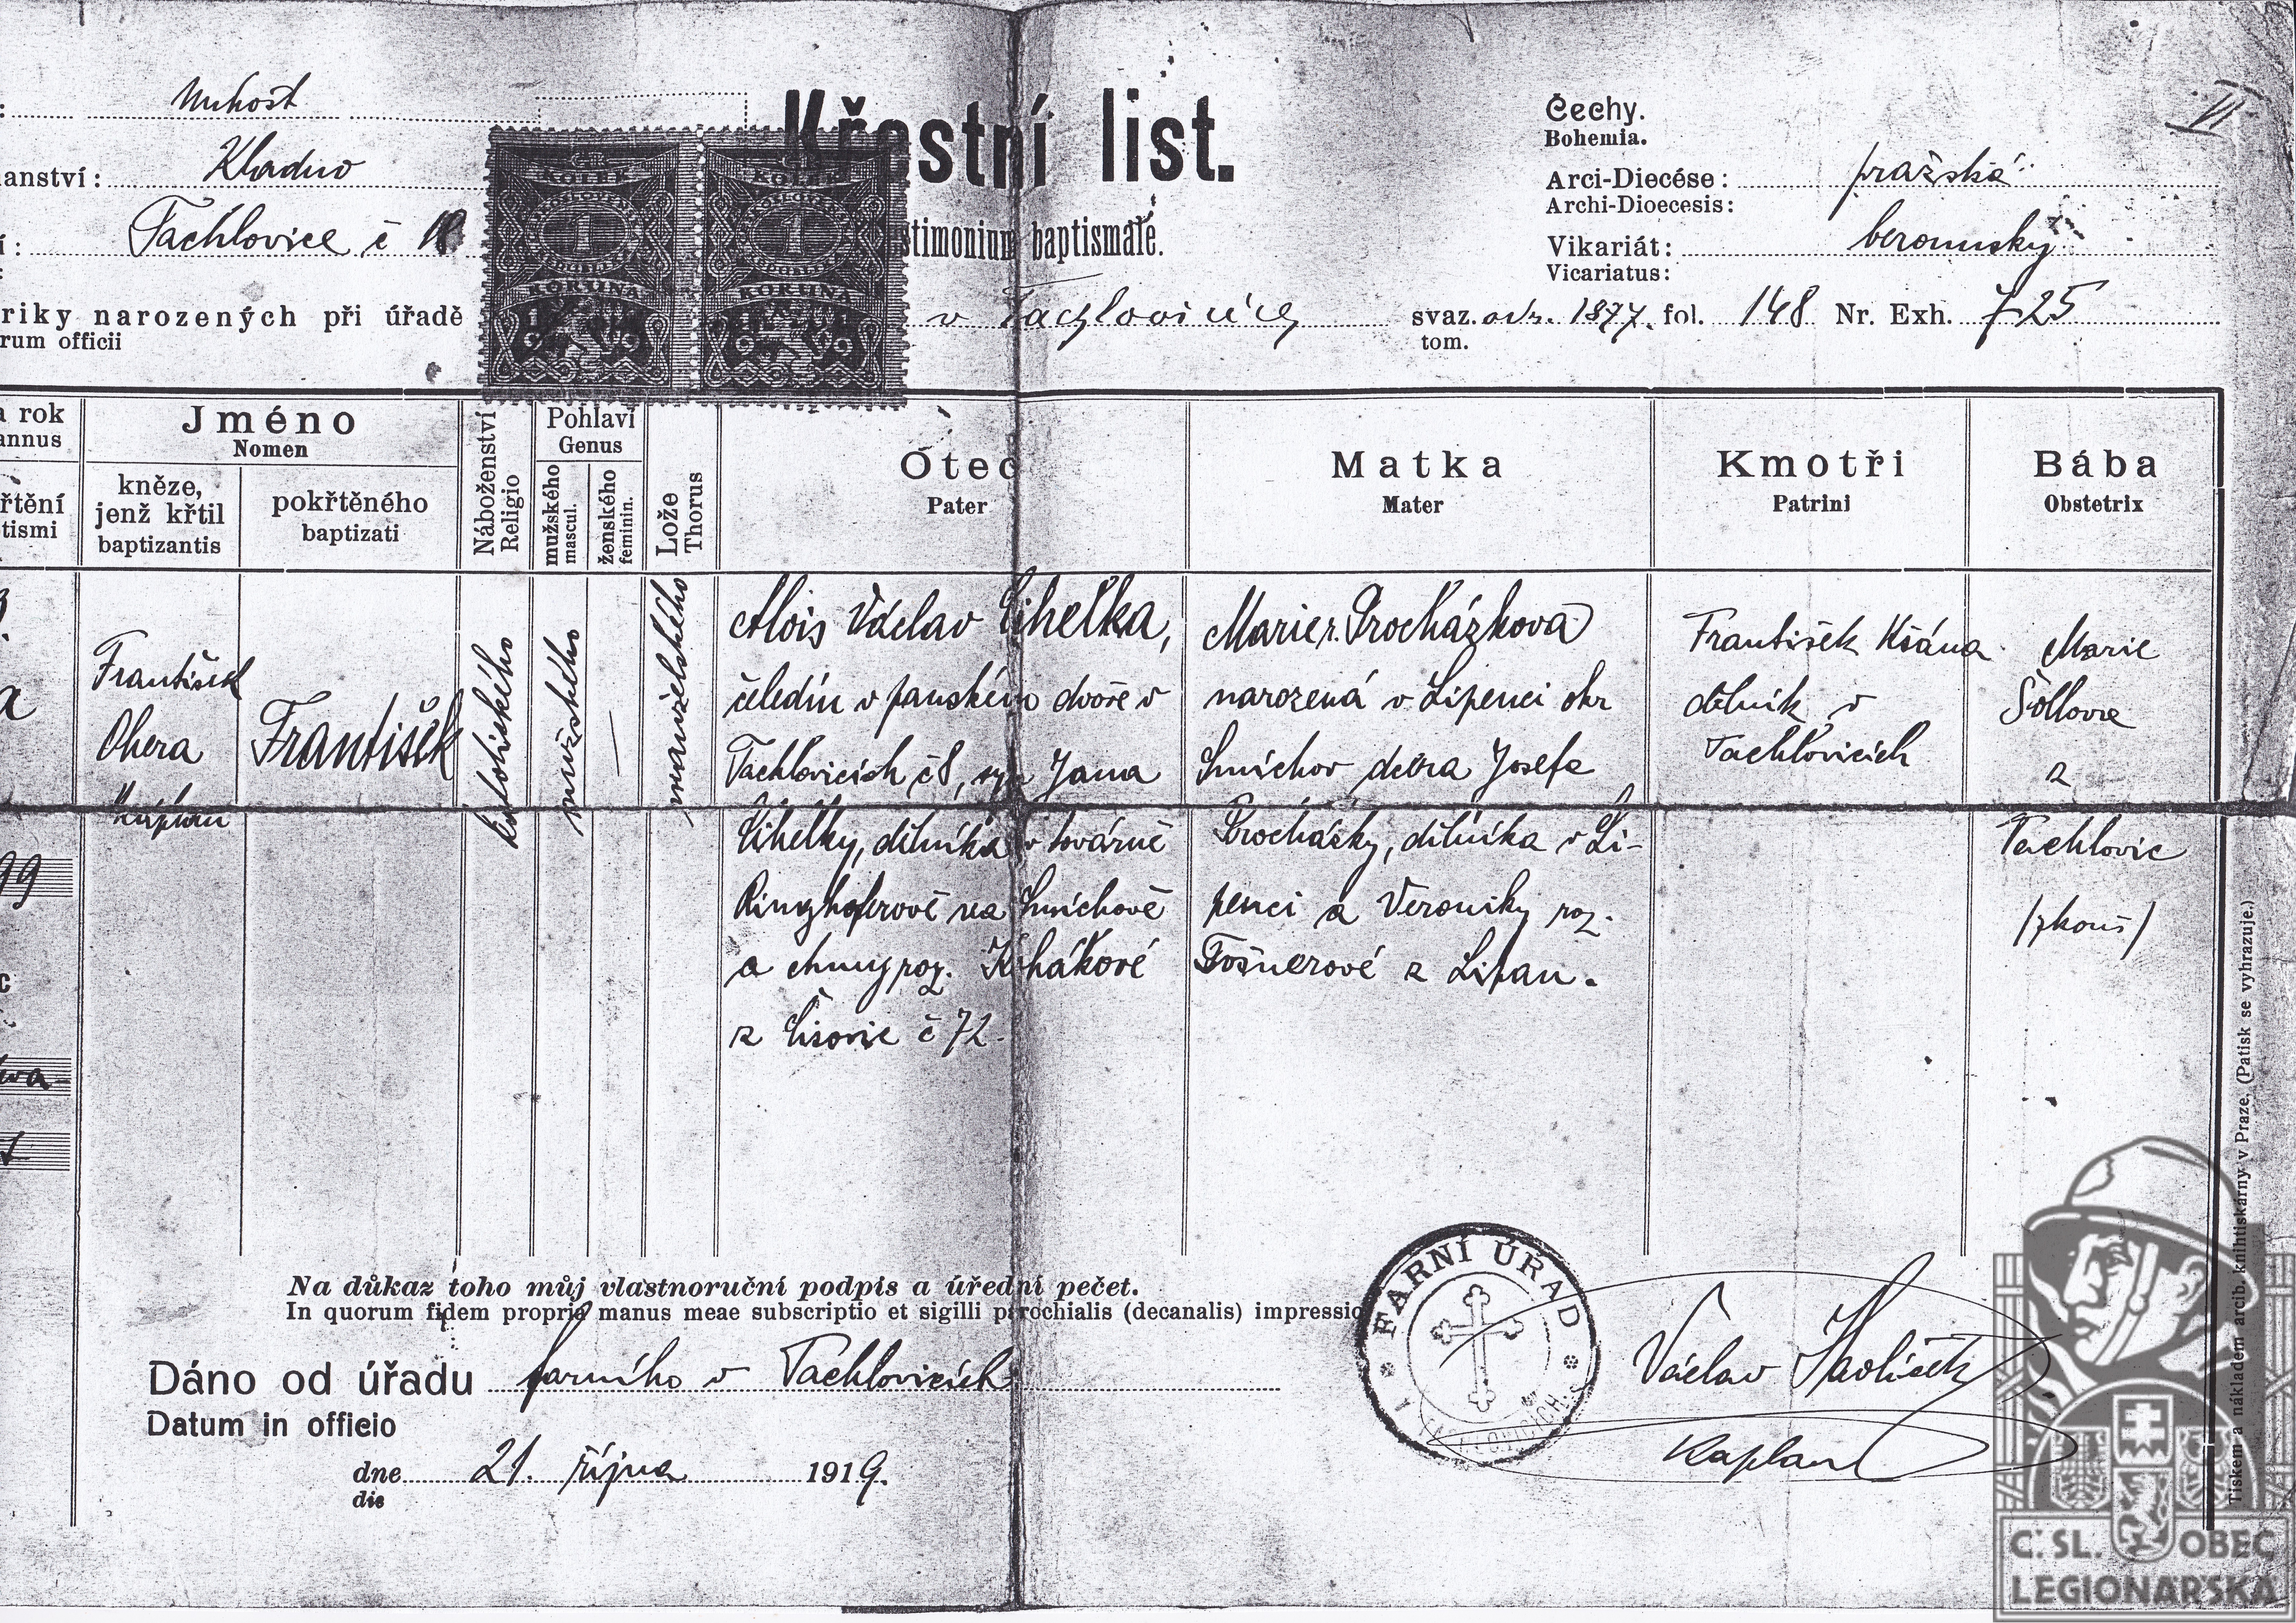 Křestní list.
Testimonium baptismale.
Unhošt
anství: Kladno
í: Tachlovice č
riky narozených při úřadě
rum officii
v Tachlovicích
svaz. odr. 1877. fol. 148 Nr. Exh. 725
tom.
Čechy.
Bohemia.
Arci-Diecése: pražská
Archi-Dioecesis:
Vikariát: berounský
Vicariatus:
VI
KOLEK
1
KORUNA
1919
KOLEK
1
KORUNA
1919
a rok
annus
řtění
tismi
Jméno
Nomen
kněze,
jenž křtil
baptizantis
pokřtěného
baptizati
Náboženství
Religio
Pohlaví
Genus
mužského
mascul.
ženského
feminin.
Lože
Thorus
Otec
Pater
Matka
Mater
Kmotři
Patrini
Bába
Obstetrix
99
František
Ohera
kaplan
František
katolického
mužského
—
manželského
Alois Václav Cihelka,
čeledín v panském dvoře v
Tachlovicích č 8, syn Jana
Cihelky, dělníka v továrně
Ringhoferově na Smíchově
a Anny roz.
z č 72.
Marie r. Procházkova
narozená v Lipenci okr
Smíchov dcera Josefa
Procházky, dělníka v Li-
penci a Veroniky roz.
Fošnerové z Lipan.
František Kšána
dělník v
Tachlovicích
Marie
Šollova
z
Tachlovic
/zkouš/
Na důkaz toho můj vlastnoruční podpis a úřední pečet.
In quorum fidem propria manus meae subscriptio et sigilli parochialis (decanalis) impressio
Dáno od úřadu farního v Tachlovicích
Datum in officio
dne 21. října 1919.
die
FARNÍ ÚŘAD
V TACHLOVICÍCH
Václav Havlíček
Kaplan
Tiskem a nákladem arcib. knihtiskárny v Praze. (Patisk se vyhrazuje.)
Č. SL. OBEC
LEGIONÁŘSKÁ